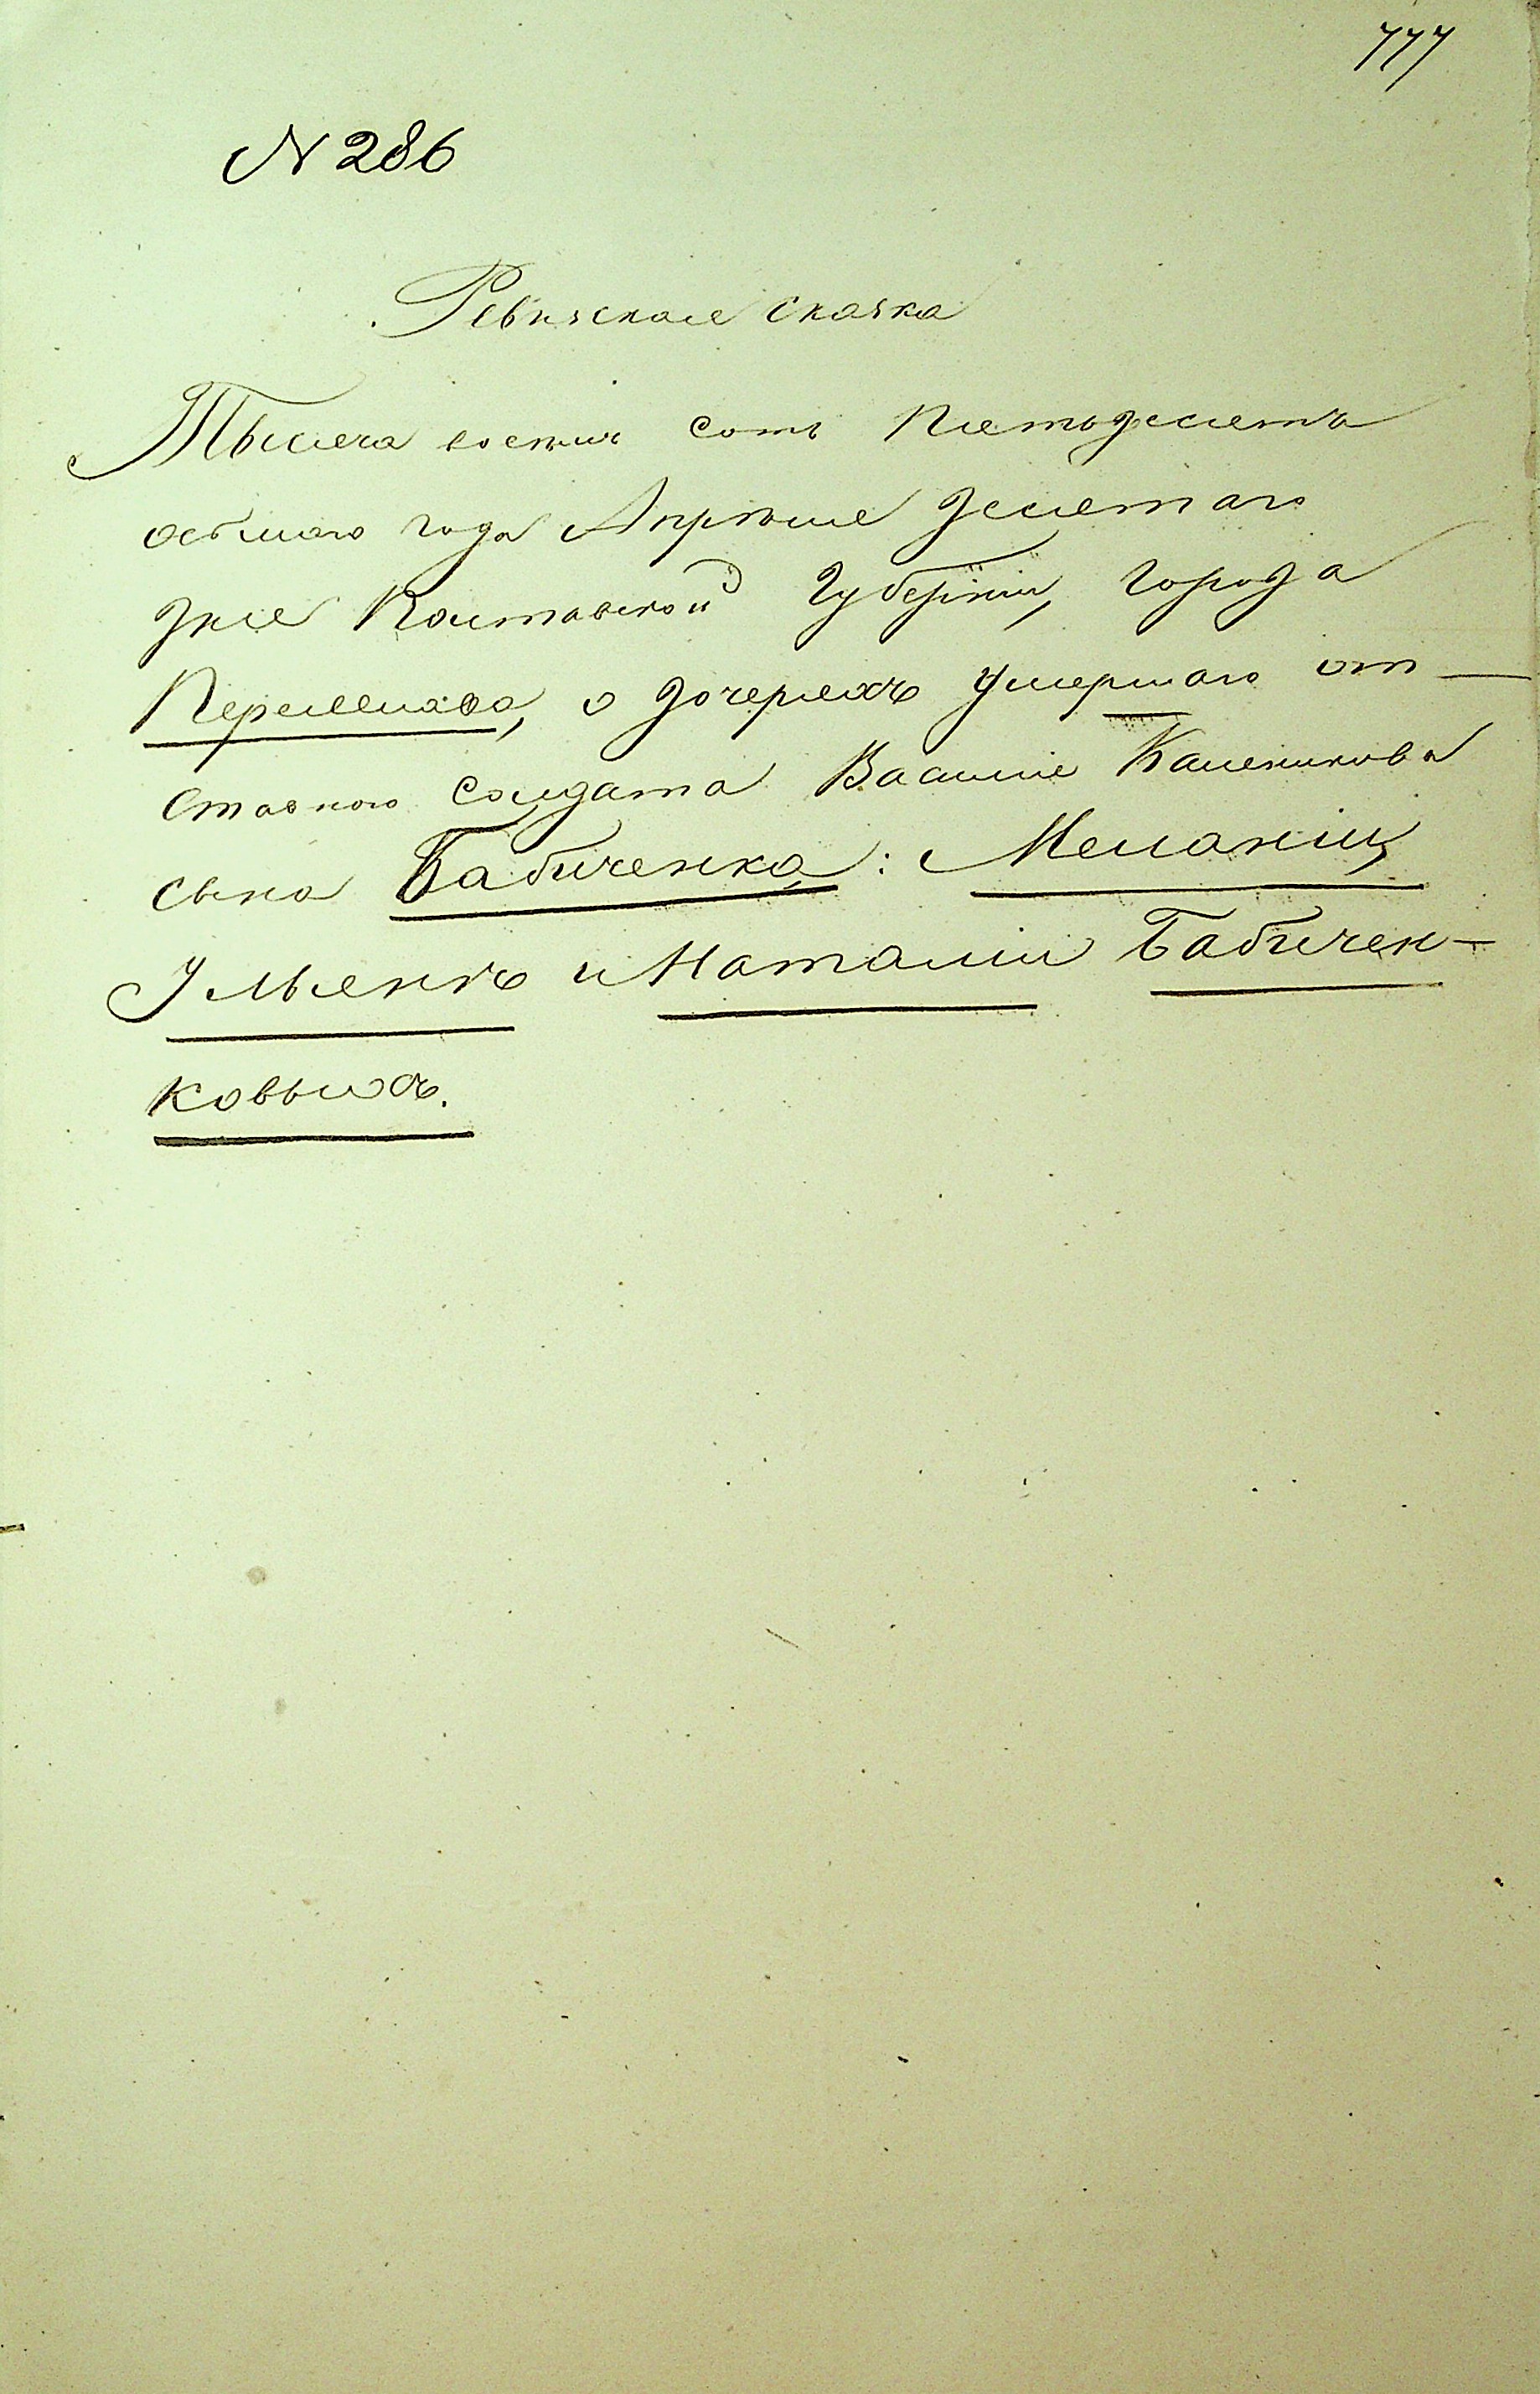 777
N 286
Ревизская сказка
Тысяча восемь сотъ пятьдесятъ
осьмаго года Апрѣля десятаго
дня Полтавской Губерніи, города
Переяслава, о дочеряхъ умершаго от-
ставнаго солдата Василія Каленикова
сына Бабиченка: Меланіи,
Ульянѣ и Наталіи Бабичен-
ковыхъ.